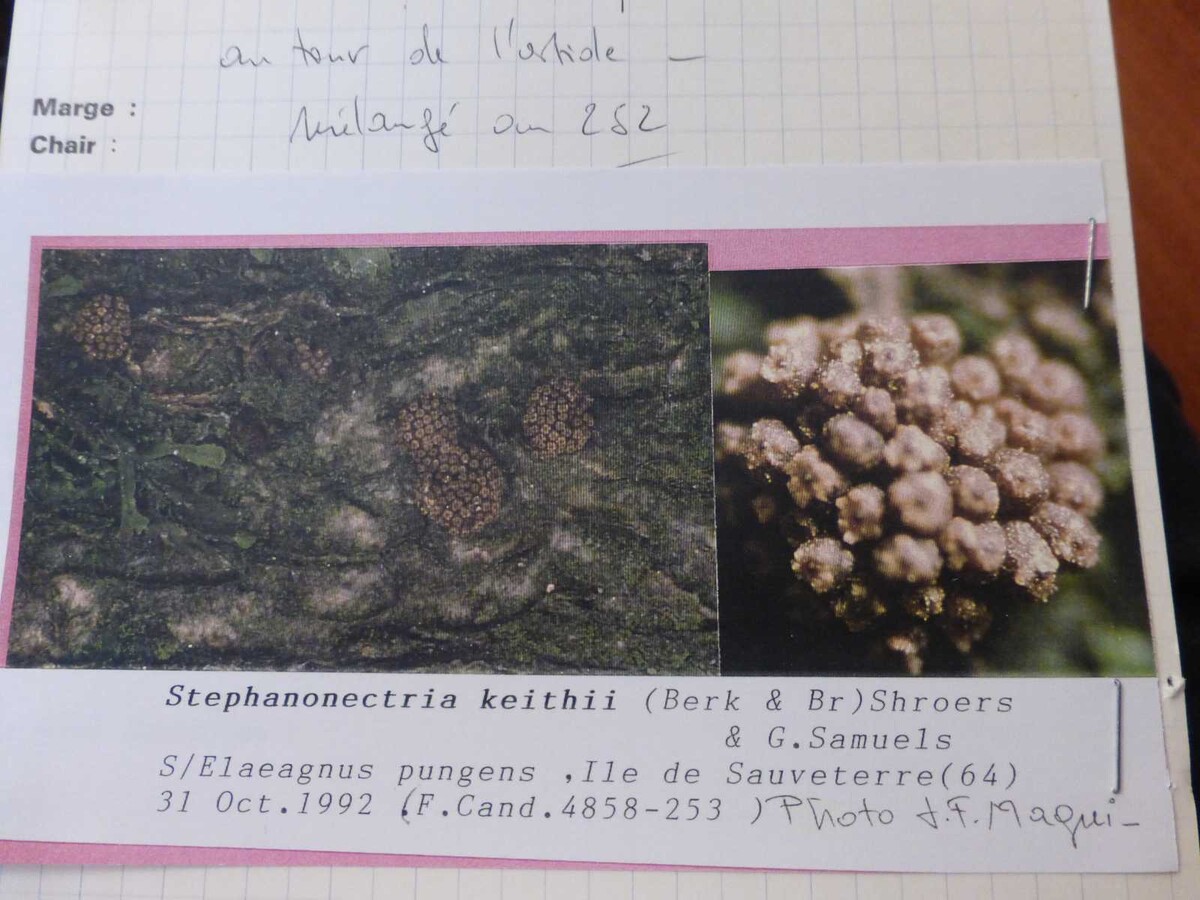 autour de l'ostiole —
Marge :
Mélangé au 252
Chair :
Stephanonectria keithii (Berk & Br)Shroers
& G.Samuels
S/Elaeagnus pungens ,Ile de Sauveterre(64)
31 Oct.1992 (F.Cand.4858-253 ) Photo J.F. Magni-